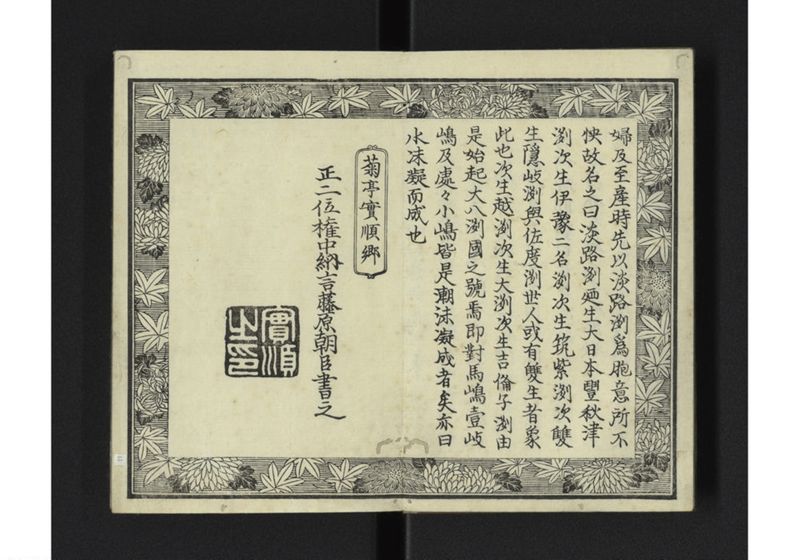 婦及至產時先以淡路洲爲胞意所不
快故名之曰淡路洲廼生大日本豐秋津
洲次生伊豫二名洲次生筑紫洲次雙
生隱岐洲與佐度洲世人或有雙生者象
此也次生越洲次生大洲次生吉備子洲由
是始起大八洲國之號焉即對馬嶋壹岐
嶋及處々小嶋皆是潮沫凝成者矣亦曰
水沫凝而成也
菊亭實順卿
正二位權中納言藤原朝臣書之
實順
之印